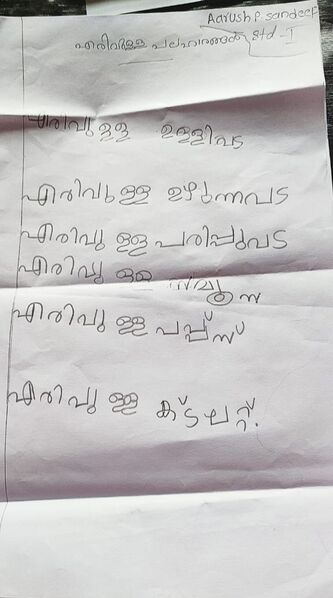 Aarush P. Sandeep
എരിവുള്ള പലഹാരങ്ങൾ Std - I
എരിവുള്ള ഉള്ളിവട
എരിവുള്ള ഉഴുന്നവട
എരിവുള്ള പരിപ്പുവട
എരിവുള്ള
എരിവുള്ള പപ്പ്സ്
എരിവുള്ള കട്ലറ്റ്.